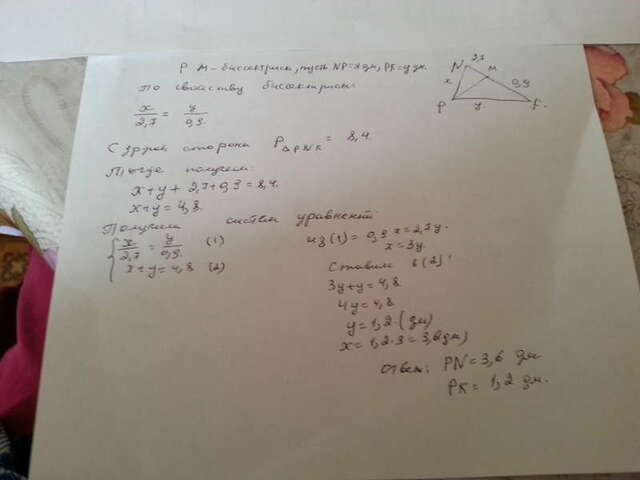 PM - биссектриса, пусть NP=x дм, PK=y дм.
По свойству биссектрисы:
x/2,7 = y/0,9.
С другой стороны P△PNK = 8,4.
Тогда получим:
x+y+2,7+0,9=8,4.
x+y=4,8.
Получим систем уравнений
{ x/2,7 = y/0,9. (1)
x+y=4,8 (2)
из (1) = 0,9 x=2,7y.
x=3y.
Ставим в (2):
3y+y=4,8
4y=4,8.
y=1,2.(дм)
x=1,2·3=3,6(дм)
Ответ: PN=3,6 дм
PK=1,2 дм.
N
2,7
M
x
0,9
P
y
K.